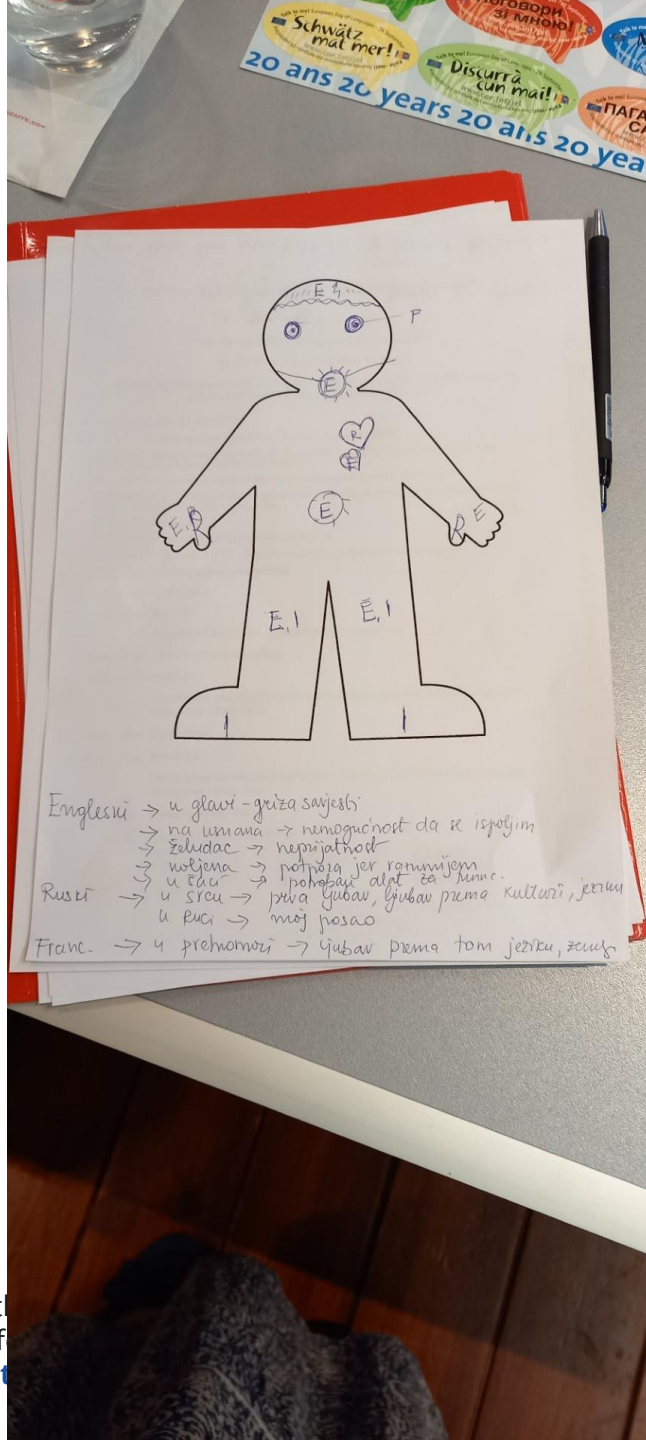 Schwätz
mat mer!
зі мною!
Discurra
cun mai!
20 ans 20 years 20 ans 20 yea
E
F
E
R
E
E, R
R E
E, I
E, I
I
I
Engleski → u glavi - griža savjesti
→ na usnama → nemogućnost da se ispoljim
→ želudac → neprijatnost
→ koljena → potpora jer razumijem
→ u šaci → potreban alat za
Ruski → u srcu → prva ljubav, ljubav prema kulturi, jeziku
u ruci → moj posao
Franc. → u → ljubav prema tom jeziku,